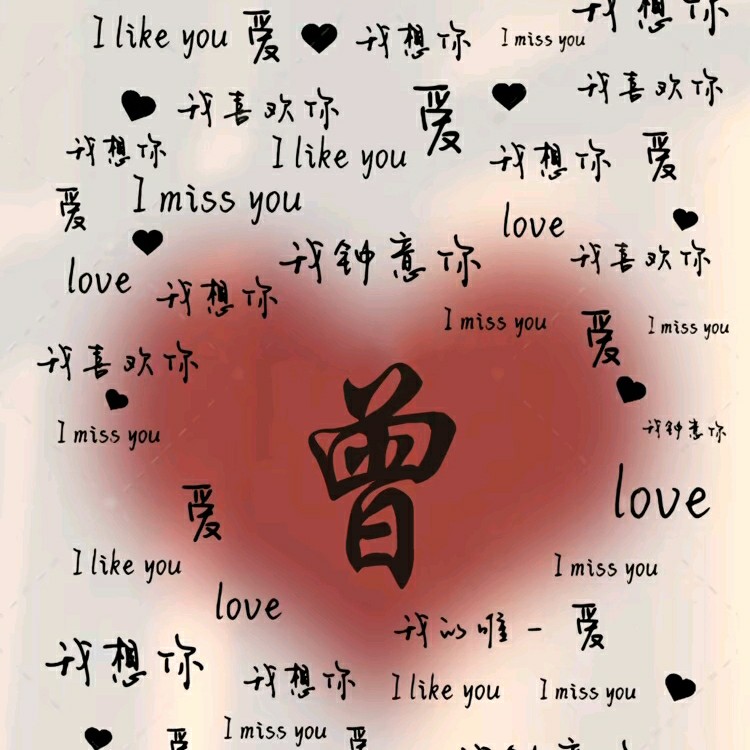 我想你
I like you 爱 我想你 I miss you
我喜欢你 爱 我喜欢你
我想你 I like you 我想你 爱
爱 I miss you love
love 我想你 我钟意你 我喜欢你
I miss you 爱 I miss you
我喜欢你
I miss you 曾 我钟意你
爱 love
I like you I miss you
love 我的唯一 爱
我想你 我想你 I like you I miss you
I miss you